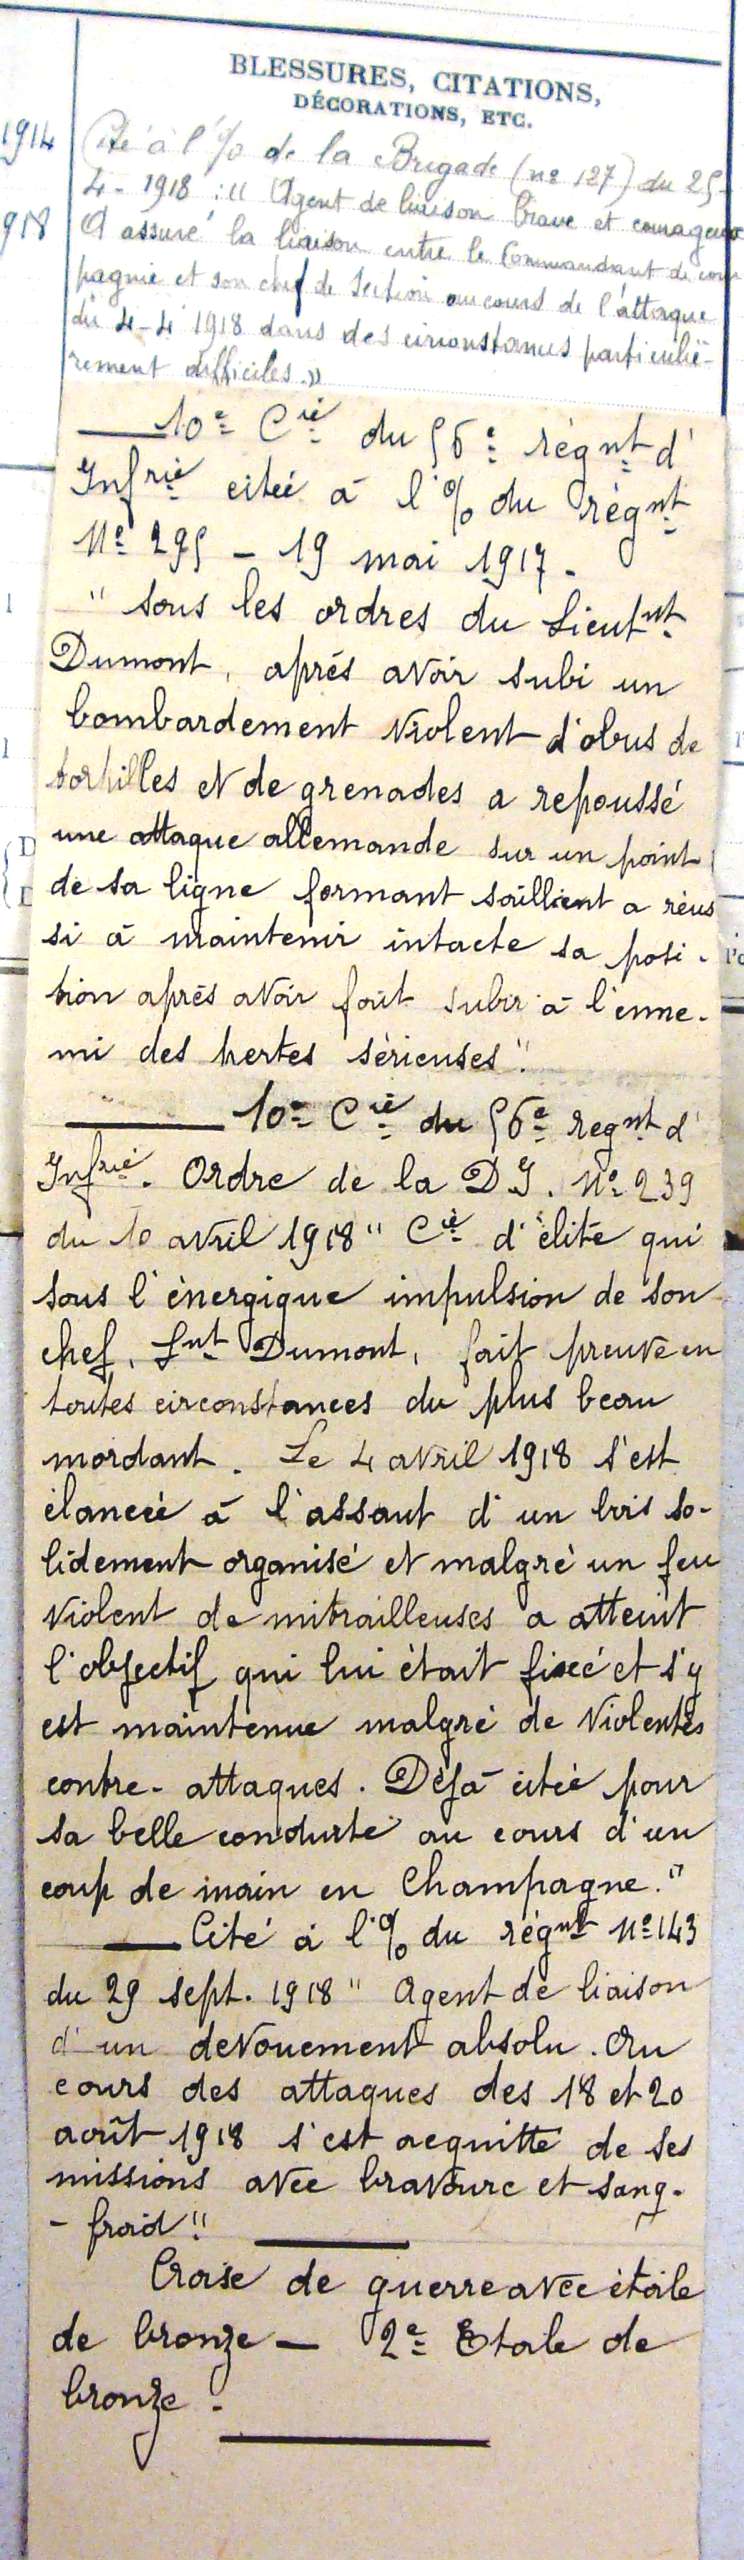 BLESSURES, CITATIONS,
DÉCORATIONS, ETC.
1914
Cité à l'% de la Brigade (nº 127) du 25-
4-1918 : " Agent de liaison brave et courageux
918
A assuré la liaison entre le Commandant de com
pagnie et son chef de section au cours de l'attaque
du 4-4 1918 dans des circonstances particuliè-
rement difficiles. "
10e Cie du 56e régnt d'
Infrie citée à l'% du régnt
Nº 295 - 19 mai 1917.
" sous les ordres du Lieutnt
Dumont, après avoir subi un
bombardement violent d'obus de
torpilles et de grenades a repoussé
une attaque allemande sur un point
de sa ligne formant saillient a réus
si à maintenir intacte sa posi-
tion après avoir fait subir à l'enne-
mi des pertes sérieuses "
10e Cie du 56e regnt d'
Infrie. Ordre de la D I. Nº 239
du 10 avril 1918 " Cie d'élite qui
sous l'énergique impulsion de son
chef, Lnt Dumont, fait preuve en
toutes circonstances du plus beau
mordant. Le 4 avril 1918 s'est
élancée à l'assaut d'un bois so-
lidement organisé et malgré un feu
violent de mitrailleuses a atteint
l'objectif qui lui était fixé et s'y
est maintenue malgré de violentes
contre-attaques. Déjà citée pour
sa belle conduite au cours d'un
coup de main en Champagne. "
Cité à l'% du régnt Nº 143
du 29 sept. 1918 " Agent de liaison
d'un devouement absolu. Au
cours des attaques des 18 et 20
août 1918 s'est acquitté de ses
missions avec bravoure et sang-
-froid "
Croise de guerre avec étoile
de bronze - 2e Etoile de
bronze.